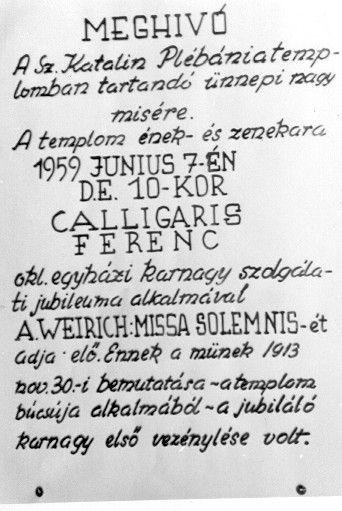 MEGHIVÓ
A Sz. Katalin Plébániatemp-
lomban tartandó ünnepi nagy
misére.
A templom ének- és zenekara
1959 JUNIUS 7-ÉN
D.E. 10-KOR
CALLIGARIS
FERENC
okl. egyházi karnagy szolgála-
ti jubileuma alkalmával
A. WEIRICH: MISSA SOLEMNIS-ét
adja elő. Ennek a münek 1913
nov. 30-i bemutatása - a templom
búcsúja alkalmából - a jubiláló
karnagy első vezénylése volt.